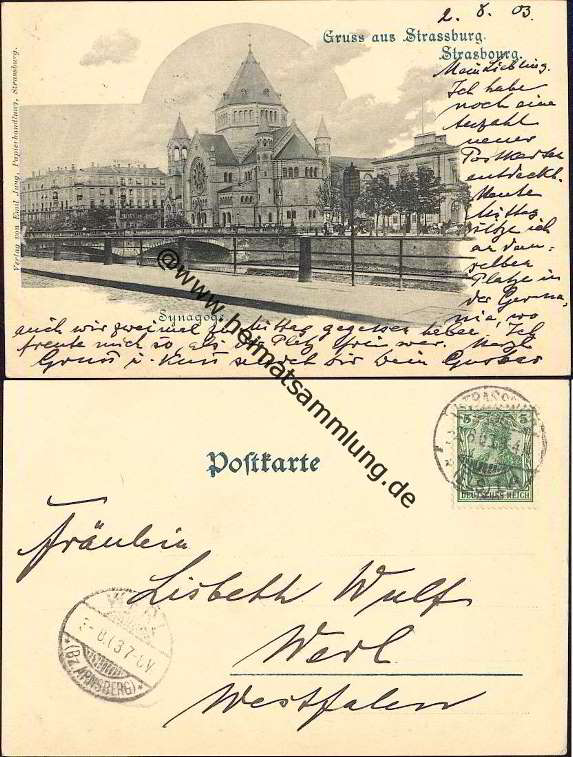 2. 8. 03.
Gruss aus Strassburg.
Strasbourg.
Verlag von Emil Jung, Papierhandlung, Strassburg.
Mein Liebling.
Ich habe
noch eine
Anzahl
neuer
Postkarten
entdeckt.
Heute
Mittag
sitze ich
an dem-
selben
Platze in
der Germa-
nia, wo
Synagoge
auch wir zweimal zu Mittag gegessen haben. Ich
freute mich so, als der Platz frei war. Herzl
Gruss u. Kuss
@www.heimatsammlung.de
Postkarte
5 5
DEUTSCHES REICH
Fräulein
Lisbeth Wulf
Werl
Westfalen
WERL
*(BZ.ARNSBERG)*